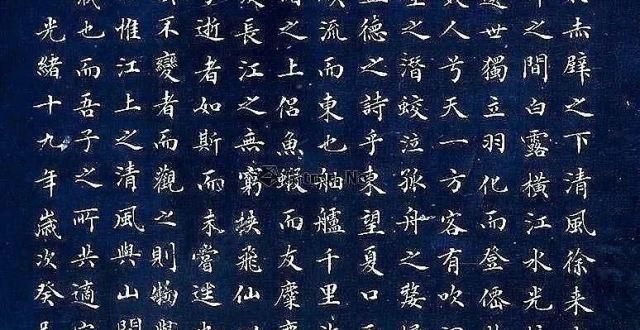 赤壁之下清風徐来
之間白露橫江水光
遺世獨立羽化而登僊
美人兮天一方客有吹
之潛蛟泣孤舟之嫠
孟德之詩乎東望夏口
流而東也舳艫千里
渚之上侶魚蝦而友麋
長江之無窮挾飛仙
逝者如斯而未嘗迷也
不變者而觀之則物與
惟江上之清風與山間
也而吾子之所共適
光緒十九年歲次癸